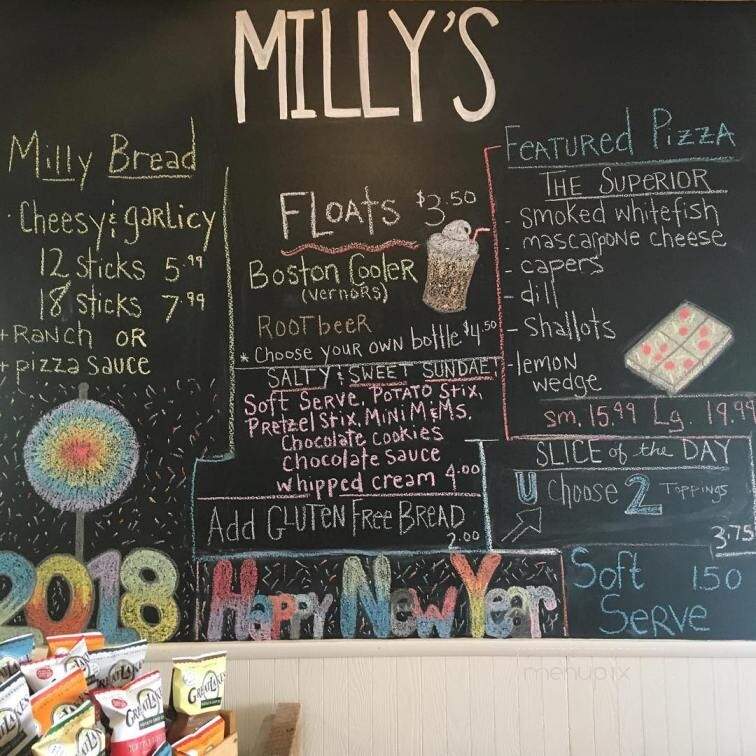 MILLY'S
Milly Bread
· Cheesy & garlicy
12 Sticks 5.99
18 Sticks 7.99
+ RANCH OR
+ pizza sauce
2018
FLOATS $3.50
Boston Cooler
(VERNORS)
ROOTbeer
* Choose your own bottle $4.50
SALTY & SWEET SUNDAE
Soft Serve, Potato Stix,
Pretzel Stix, Mini M&Ms,
Chocolate cookies
chocolate sauce
whipped cream 4.00
Add GLUTEN Free BREAD
2.00
Happy New Year
FEATURED PIZZA
THE SUPERIOR
- smoked whitefish
- mascarpone cheese
- capers
- dill
- Shallots
- lemon
wedge
sm. 15.99 Lg. 19.99
SLICE of the DAY
U Choose 2 TOPPINGS
3.75
Soft 1.50
SERVE
menupix
GREAT LAKES
GREAT LAKES
GREAT LAKES